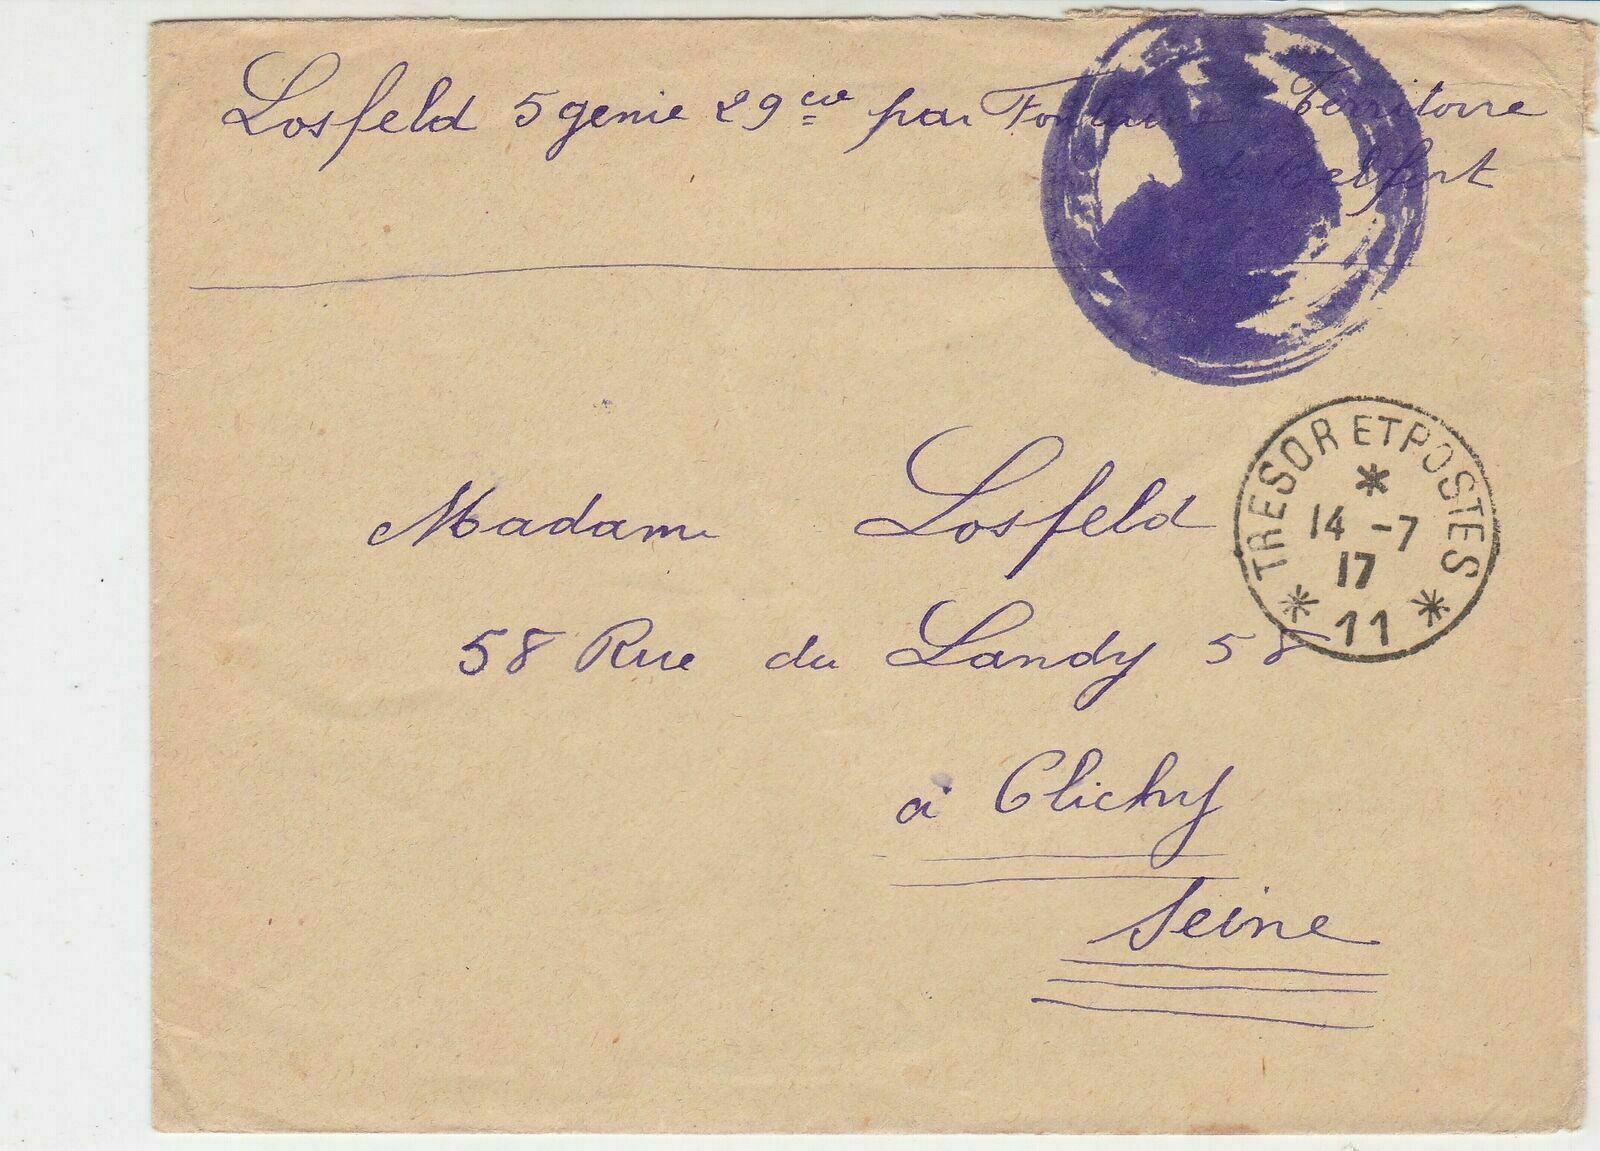 Losfeld 5 genie 29 cie par Fontaine Territoire
de Belfort
TRESOR ET POSTES
* 14 -7
17
* 11 *
Madame Losfeld
58 Rue du Landy 58
à Clichy
Seine